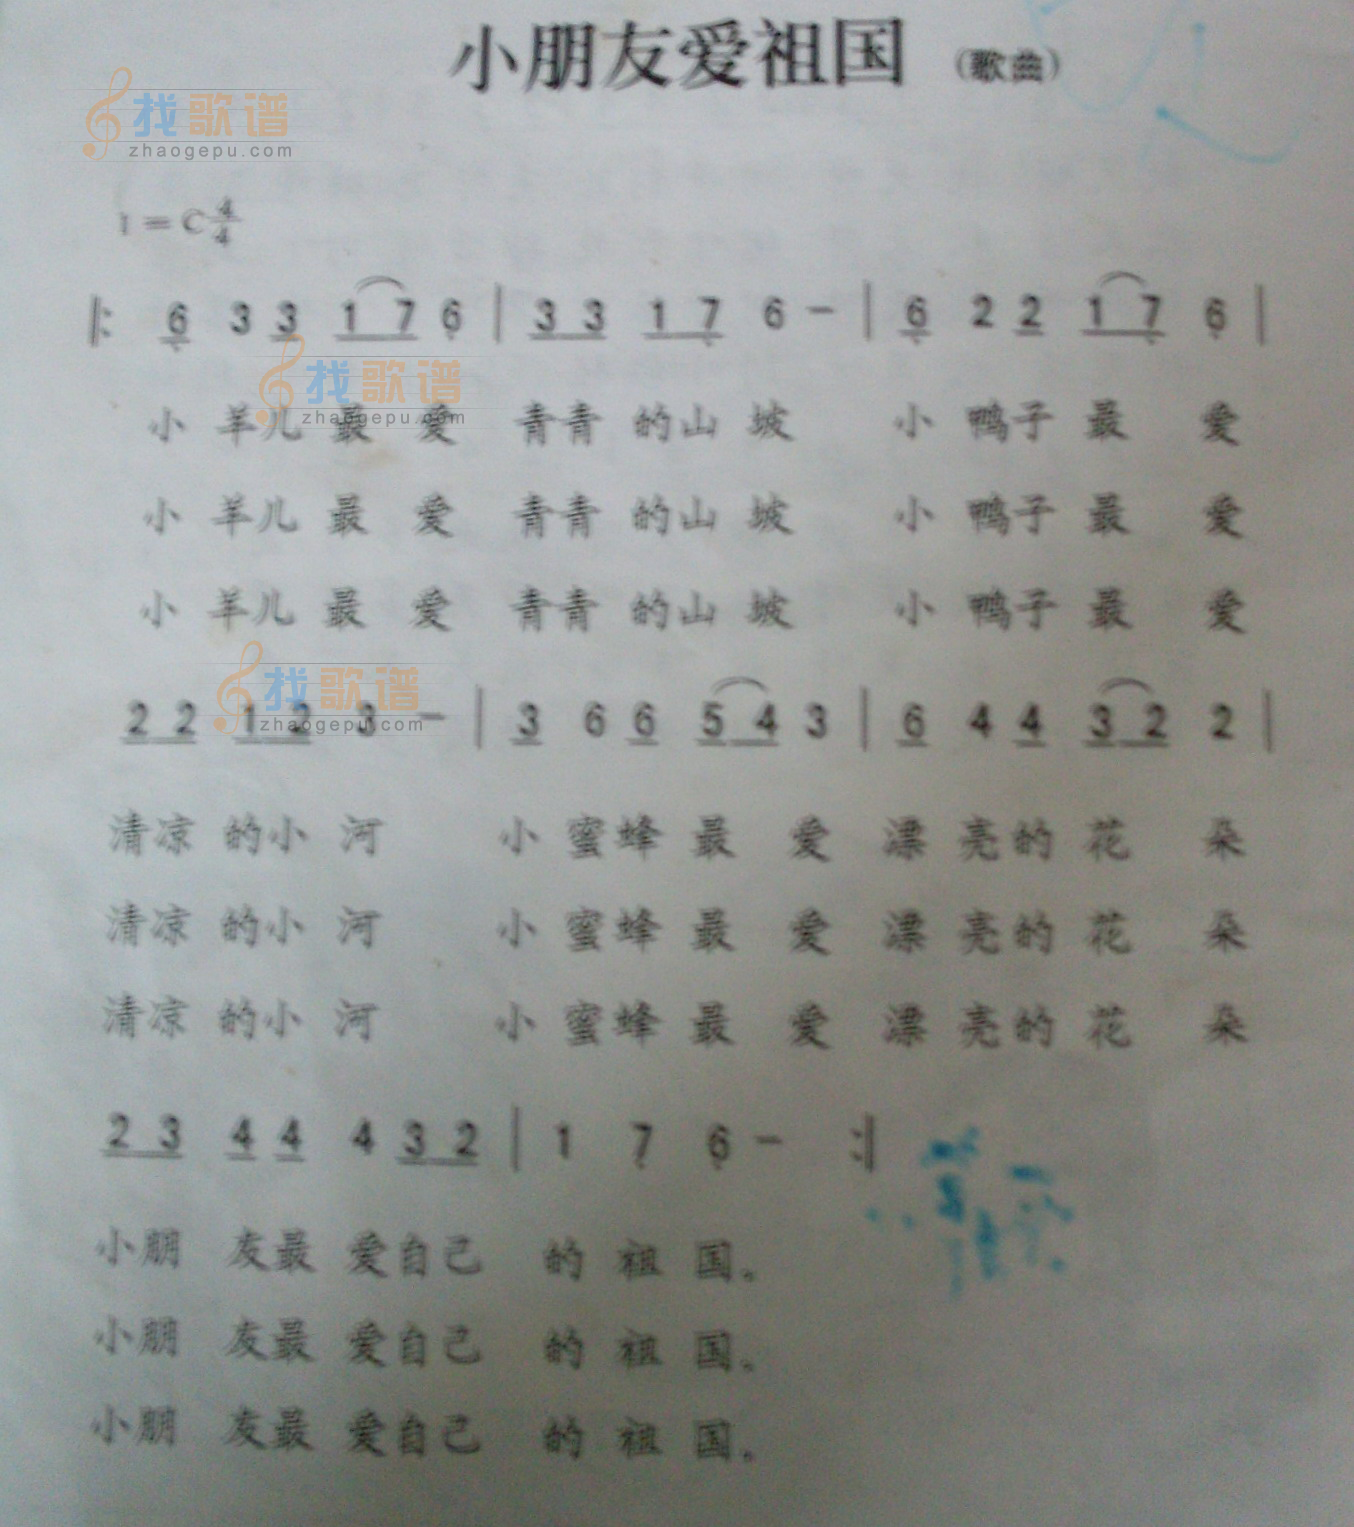 小朋友爱祖国 (歌曲)
找歌谱
zhaogepu.com
1=C 4/4
6 3 3 1 7 6 | 3 3 1 7 6 - | 6 2 2 1 7 6 |
找歌谱
zhaogepu.com
小 羊儿 最 爱 青青 的山 坡 小 鸭子 最 爱
小 羊儿 最 爱 青青 的山 坡 小 鸭子 最 爱
小 羊儿 最 爱 青青 的山 坡 小 鸭子 最 爱
找歌谱
zhaogepu.com
2 2 1 2 3 - | 3 6 6 5 4 3 | 6 4 4 3 2 2 |
清凉 的小 河 小 蜜蜂 最 爱 漂 亮的 花 朵
清凉 的小 河 小 蜜蜂 最 爱 漂 亮的 花 朵
清凉 的小 河 小 蜜蜂 最 爱 漂 亮的 花 朵
2 3 4 4 4 3 2 | 1 7 6 - :|
小朋 友最 爱自己 的 祖 国。
小朋 友最 爱自己 的 祖 国。
小朋 友最 爱自己 的 祖 国。